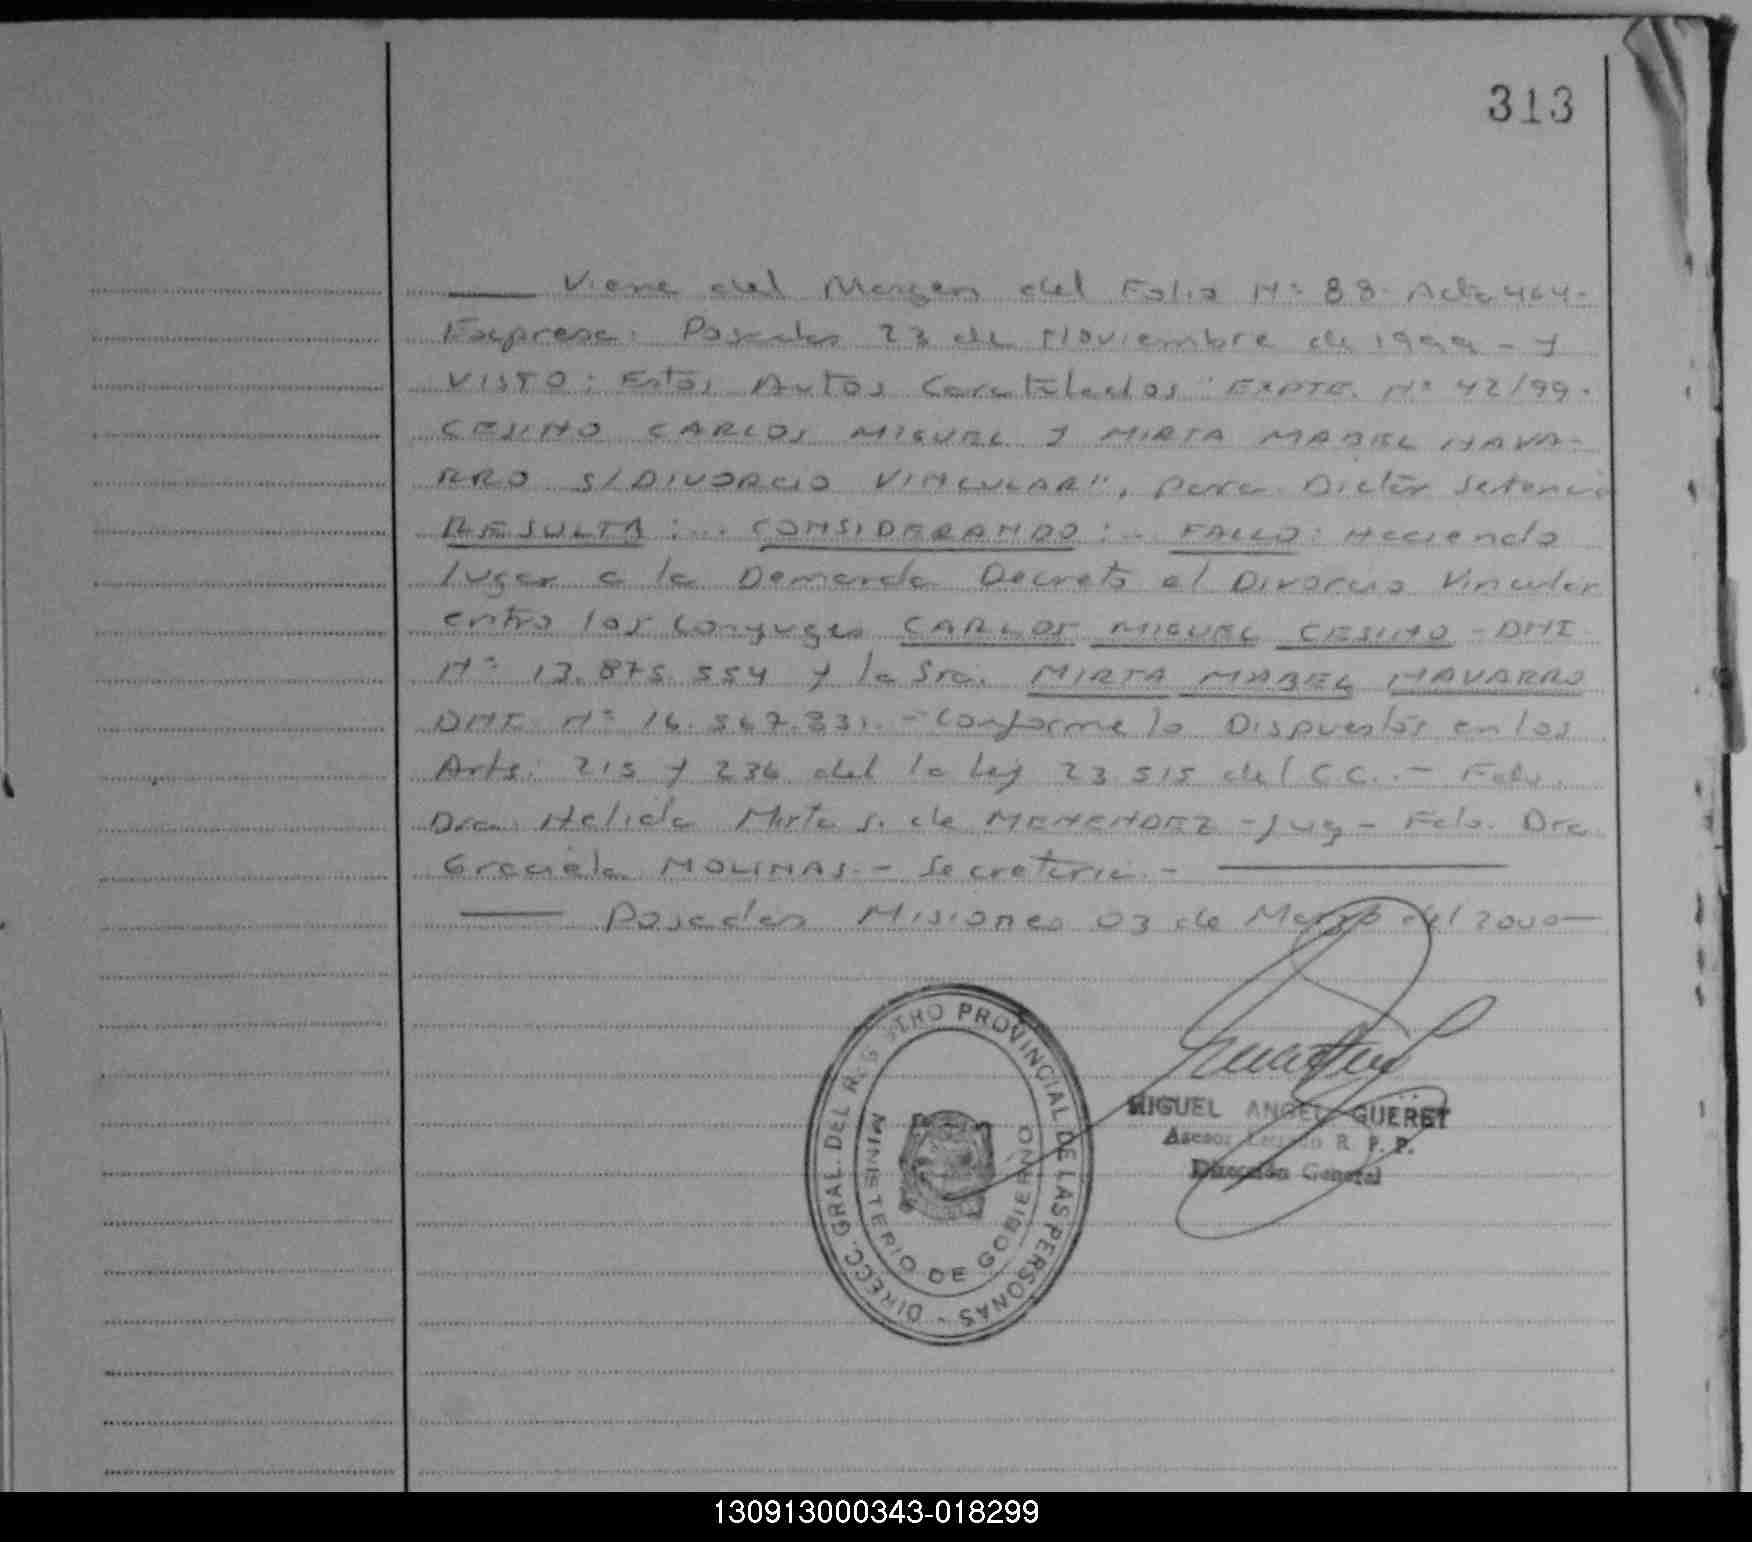 313
Viene del Margen del Folio Nº 88. Acta 464.
Expresa: Posadas 23 de Noviembre de 1999 - Y
VISTO: Estos Autos Caratulados "EXPTE. Nº 42/99.
CESINO CARLOS MIGUEL Y MIRTA MABEL NAVA-
RRO S/DIVORCIO VINCULAR", para Dictar Setencia
RESULTA:... CONSIDERANDO:.. FALLO: Haciendo
lugar a la Demanda Decreto el Divorcio Vincular
entre los conyuges CARLOS MIGUEL CESINO - DNI
Nº 13.875.554 y la Sra. MIRTA MABEL NAVARRO
DNI Nº 16. - Conforme lo Dispuesto en los
Arts. 215 y 236 del la Ley 23.515 del C.C.. - Fdo.
Dra. Nelida Mirta S. de MENENDEZ - Juez - Fdo. Dra
Graciela MOLINAS. - Secretaria. -
Posadas Misiones 03 de Marzo del 2000
DIRECC. GRAL. DEL REGISTRO PROVINCIAL DE LAS PERSONAS -
MINISTERIO DE GOBIERNO
MIGUEL ANGEL GUERET
Asesor Letrado R. P. P.
Dirección General
130913000343-018299